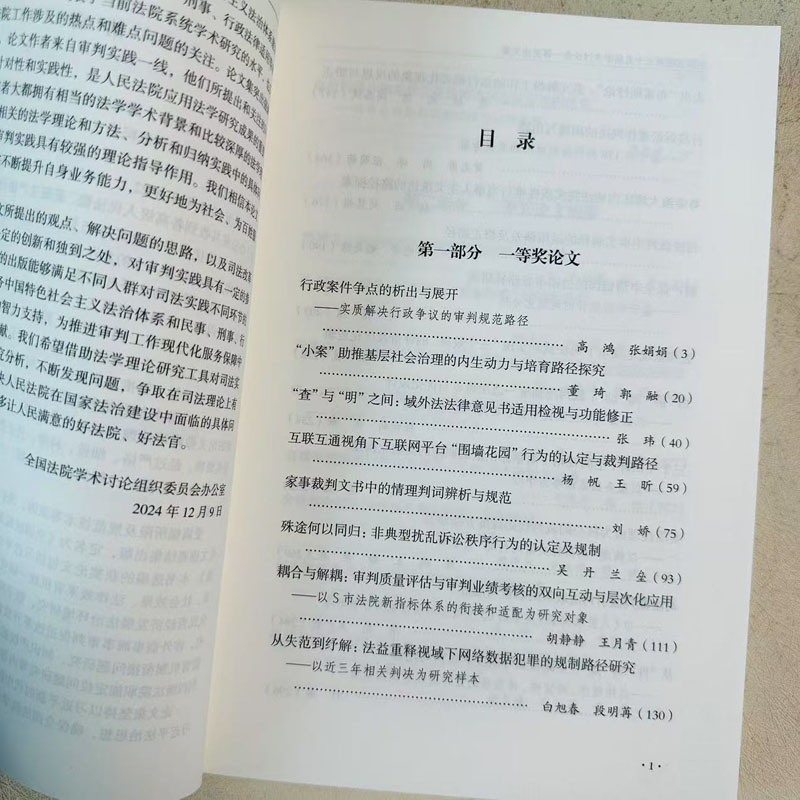 当前法院系统学术研究的水平
院工作涉及的热点和难点问题的关注。论文集
论文作者来自审判实践一线，他们所提出和关注的
针对性和实践性，是人民法院应用法学研究成果的
者大都拥有相当的法学学术背景和比较深厚的法学
相关的法学理论和方法、分析和归纳实践中的具体
审判实践具有较强的理论指导作用。我们相信本论
不断提升自身业务能力，更好地为社会、为百姓
文所提出的观点、解决问题的思路，以及司法改革
定的创新和独到之处，对审判实践具有一定的参
的出版能够满足不同人群对司法实践不同环节的
务中国特色社会主义法治体系和民事、刑事、行
智力支持，为推进审判工作现代化服务保障中
献。我们希望借助法学理论研究工具对司法实
究分析，不断发现问题，争取在司法理论上有
决人民法院在国家法治建设中面临的具体问
多让人民满意的好法院、好法官。
全国法院学术讨论组织委员会办公室
2024年12月9日
目录
第一部分　一等奖论文
行政案件争点的析出与展开
——实质解决行政争议的审判规范路径
高　鸿　张娟娟（3）
“小案”助推基层社会治理的内生动力与培育路径探究
董　琦　郭　融（20）
“查”与“明”之间：域外法法律意见书适用检视与功能修正
张　玮（40）
互联互通视角下互联网平台“围墙花园”行为的认定与裁判路径
杨　帆　王　昕（59）
家事裁判文书中的情理判词辨析与规范
刘　娇（75）
殊途何以同归：非典型扰乱诉讼秩序行为的认定及规制
吴　丹　兰　垒（93）
耦合与解耦：审判质量评估与审判业绩考核的双向互动与层次化应用
——以S市法院新指标体系的衔接和适配为研究对象
胡静静　王月青（111）
从失范到纾解：法益重释视域下网络数据犯罪的规制路径研究
——以近三年相关判决为研究样本
白旭春　段明苒（130）
·1·